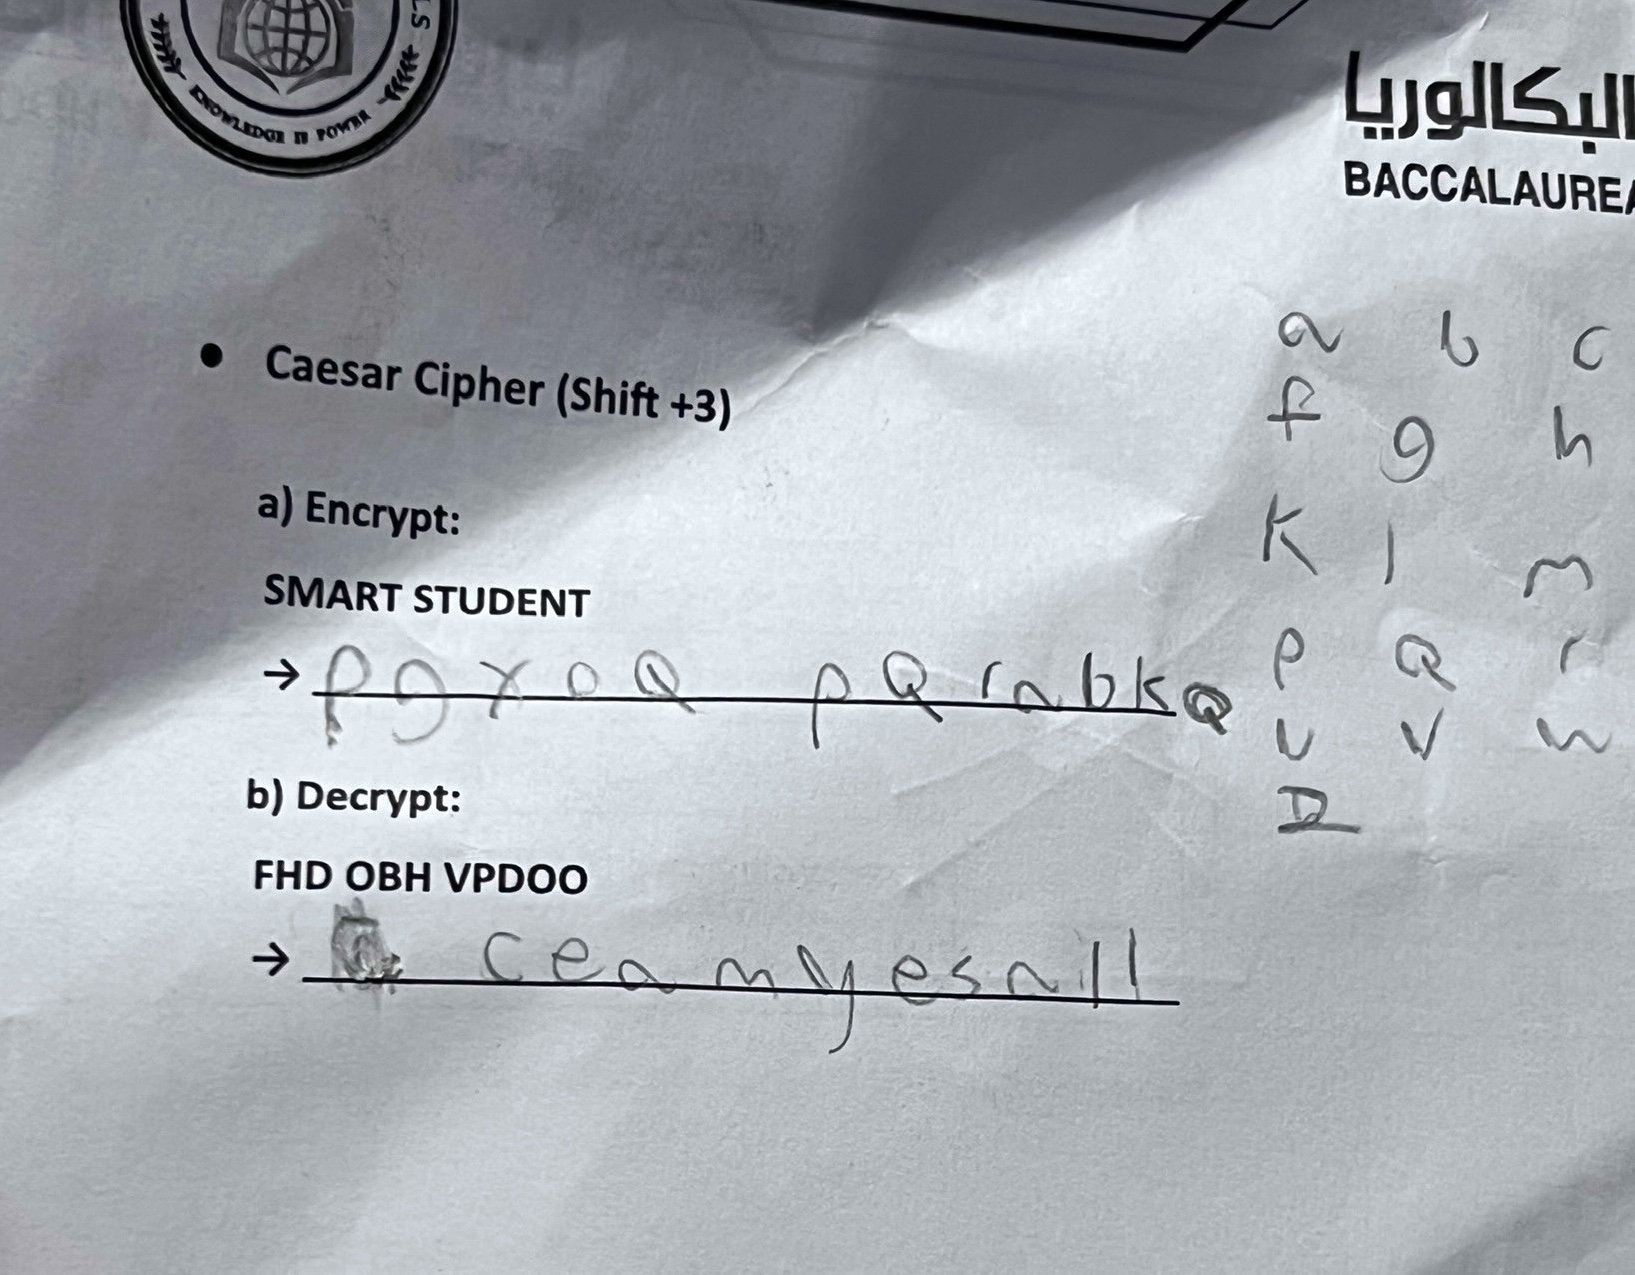 LS
KNOWLEDGE IS POWER
البكالوريا
BACCALAUREA
• Caesar Cipher (Shift +3)
a) Encrypt:
SMART STUDENT
→ pgxoQ pQrabkQ
b) Decrypt:
FHD OBH VPDOO
→ cea mye sall
a b c
f g h
K l m
P Q r
U V w
Z